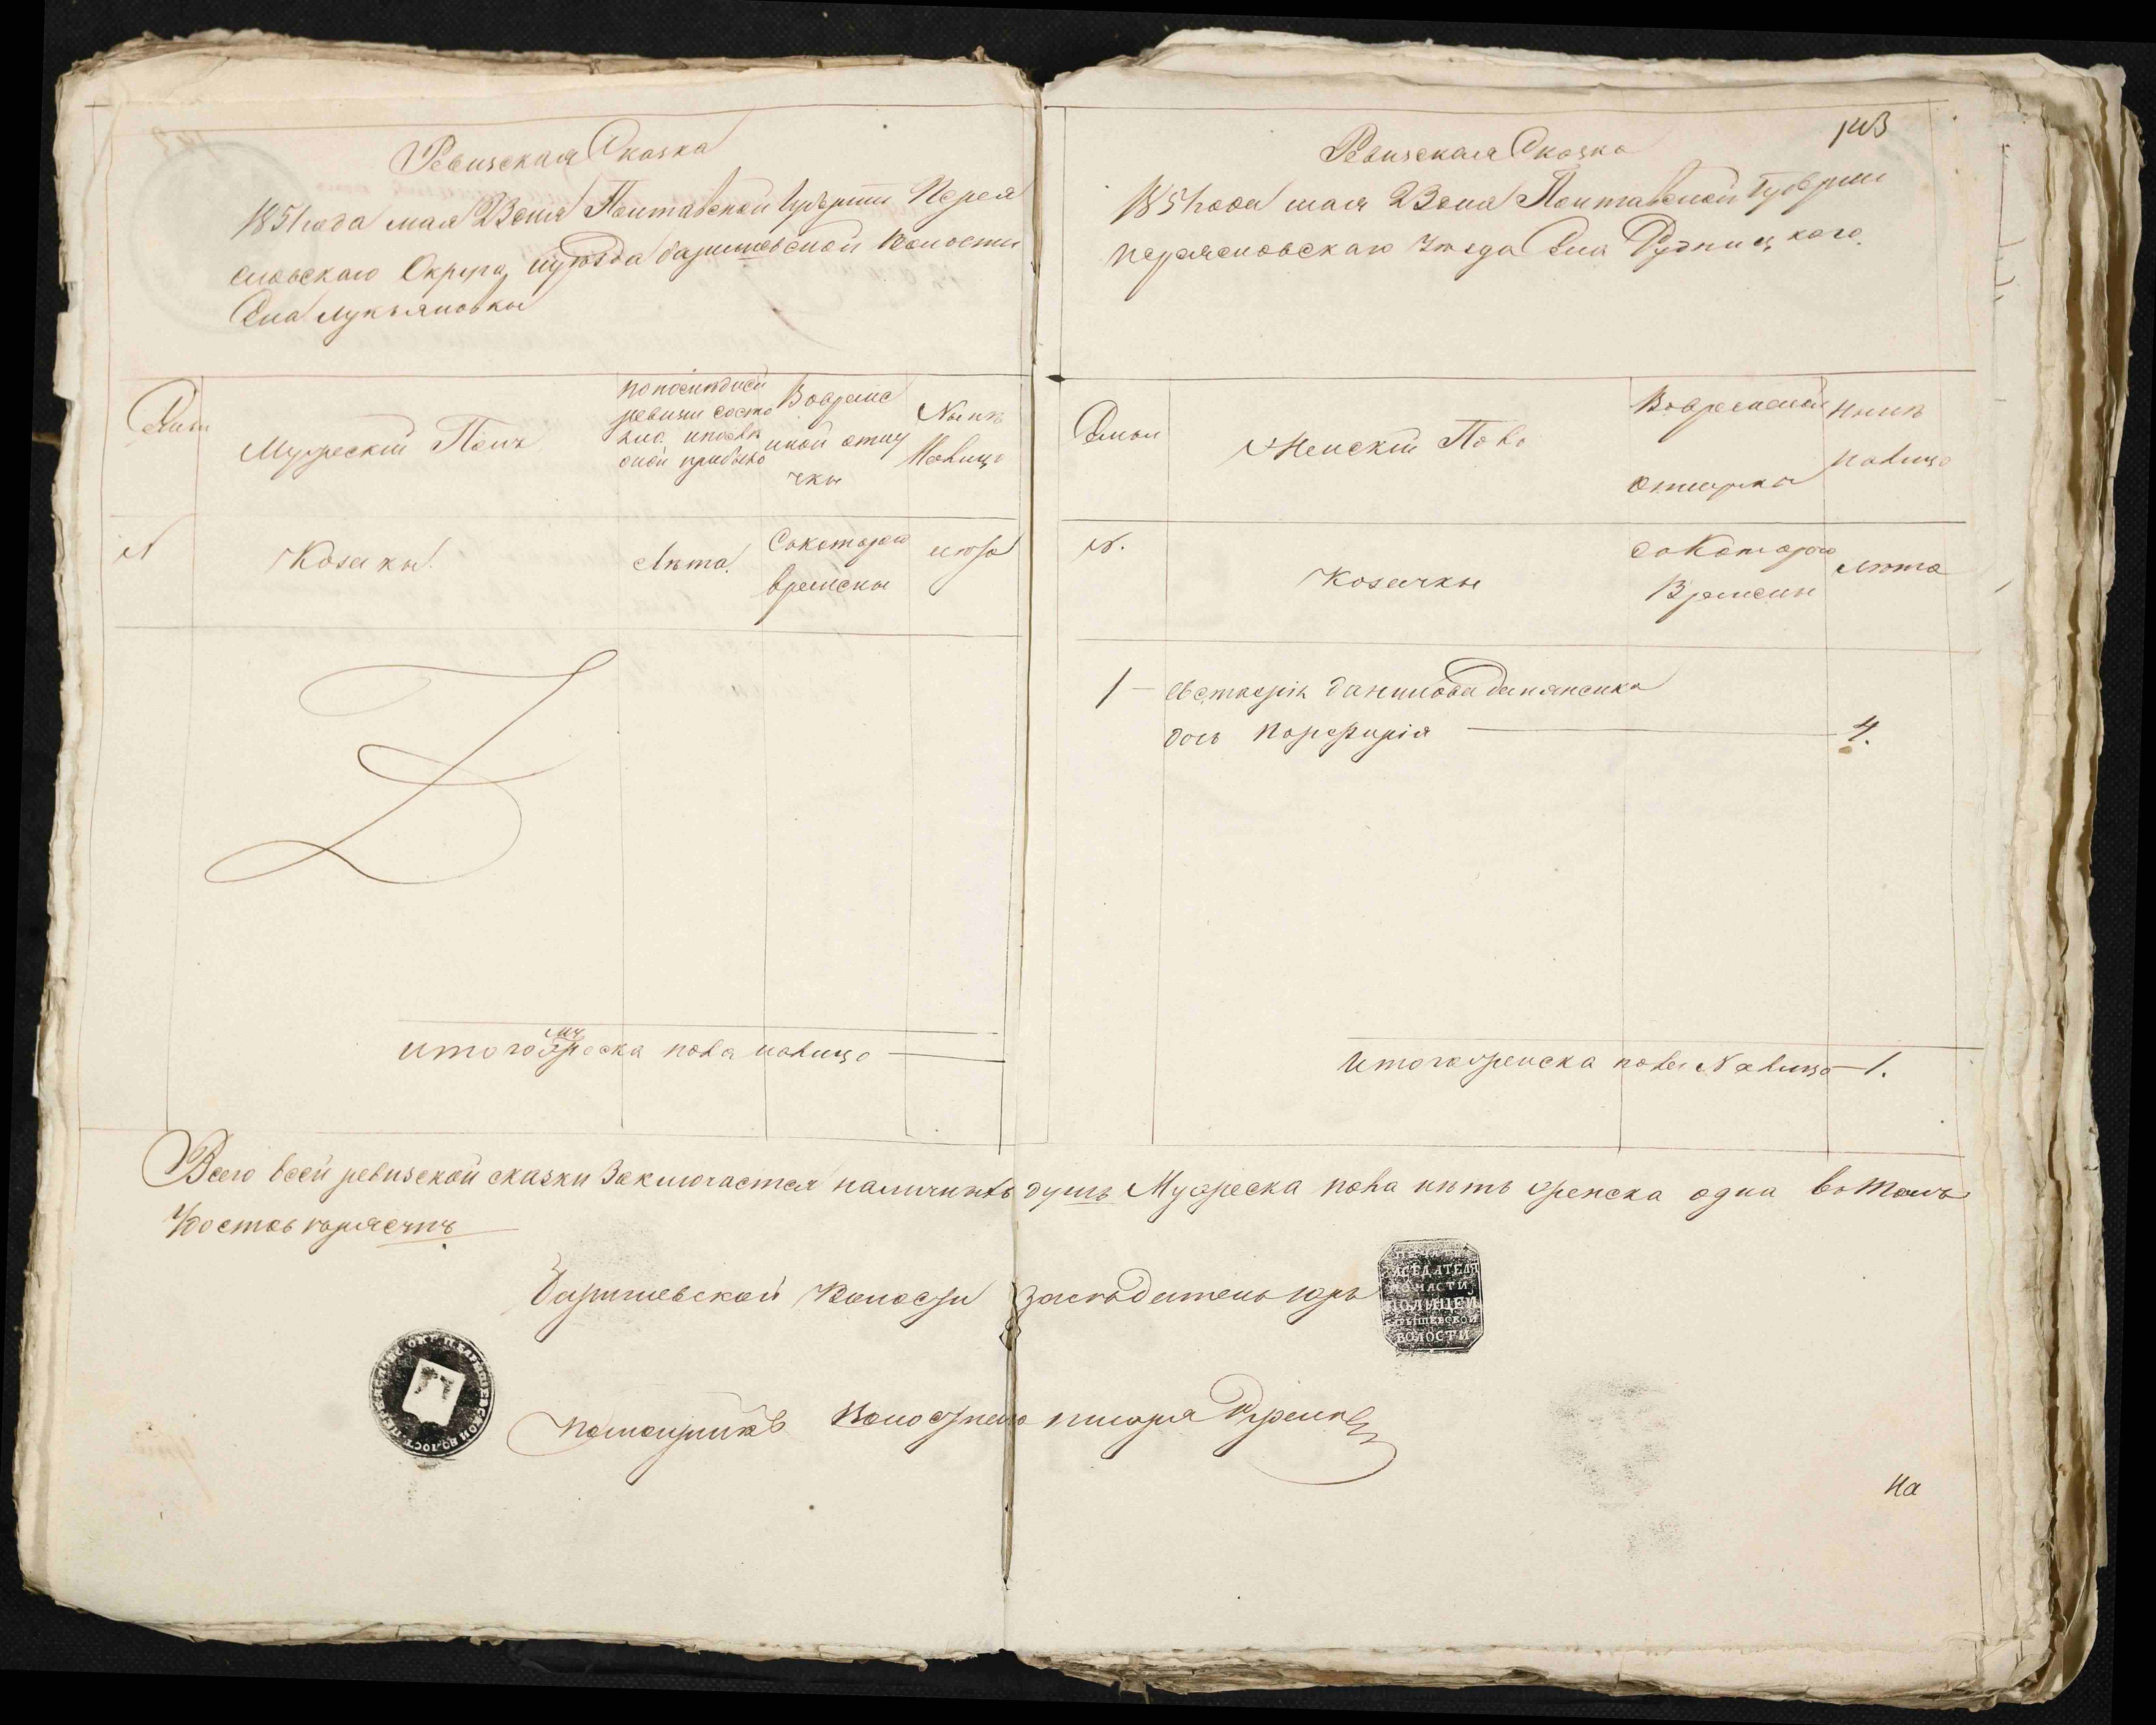 Ревизская Сказка
1851 года мая 23 дня Полтавской Губернии Перея
словского Округа, иуѣзда барышевской волости
Села Лукьяновки
Семьи
Мужеский Полъ
попоследней
ревизии состо
яло ипослѣ
оной прибыло
Вовреме
нной отлу
чки
Нынѣ
Налицо
№
Козаки.
Лѣта.
Скотораго
времени
лѣта
итого мужеска пола налицо
143
Ревизская Сказка
1851 года мая 23 дня Полтавской Губернии
переясловскаго Уезда Села Рудницкаго
Семьи
Женский Полъ
Вовременной
отлучки
ныне
налицо
№.
Козачки
Скотораго
Времени
лѣта
1 – данилова
дочь Порфирія 4.
Итого женска пола Налицо – 1.
Всего всей ревизской сказки Заключается наличныхъ душъ Мужеска пола нѣтъ женска одна вотомъ
Удостоверяетъ
Барышевской Волости Заседатель
ПЕЧАТЬ
ЗАСЕДАТЕЛЯ
ПО ЧАСТИ
ПОЛИЦЕЙ
БАРЫШЕВСКОЙ
ВОЛОСТИ
помощникъ Волостнаго писаря
На